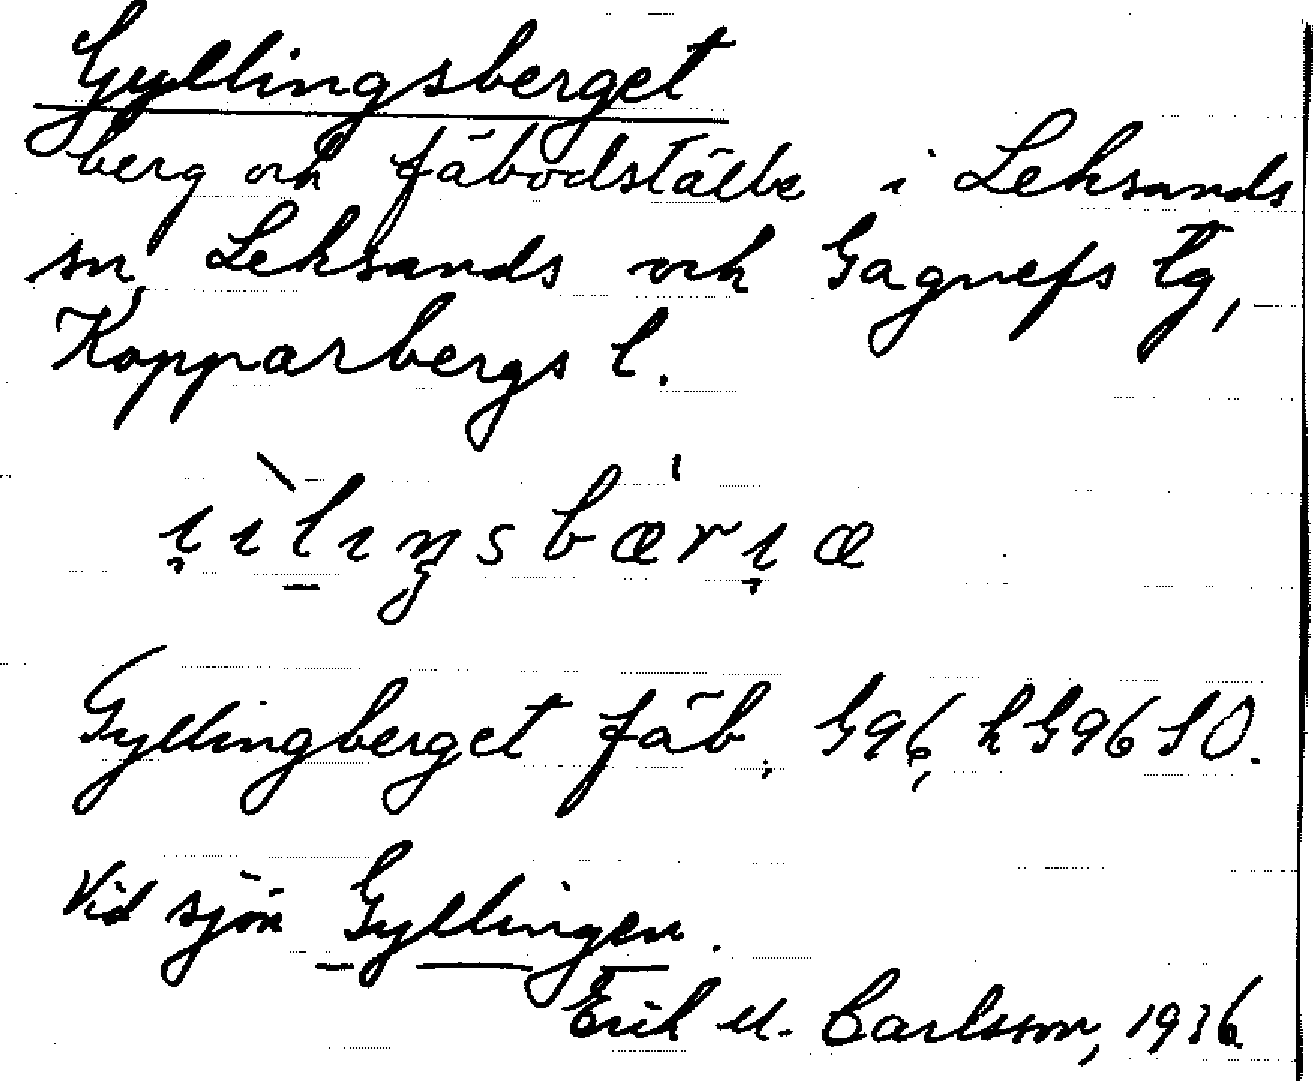 Gyllingsberget
berg och fäbodställe i Leksands
sn, Leksands och Gagnefs tg,
Kopparbergs l.
Gyllingberget fäb., G96, hG96 SO.
Vid sjön Gyllingen.
Erik M. Carlsson, 1936.